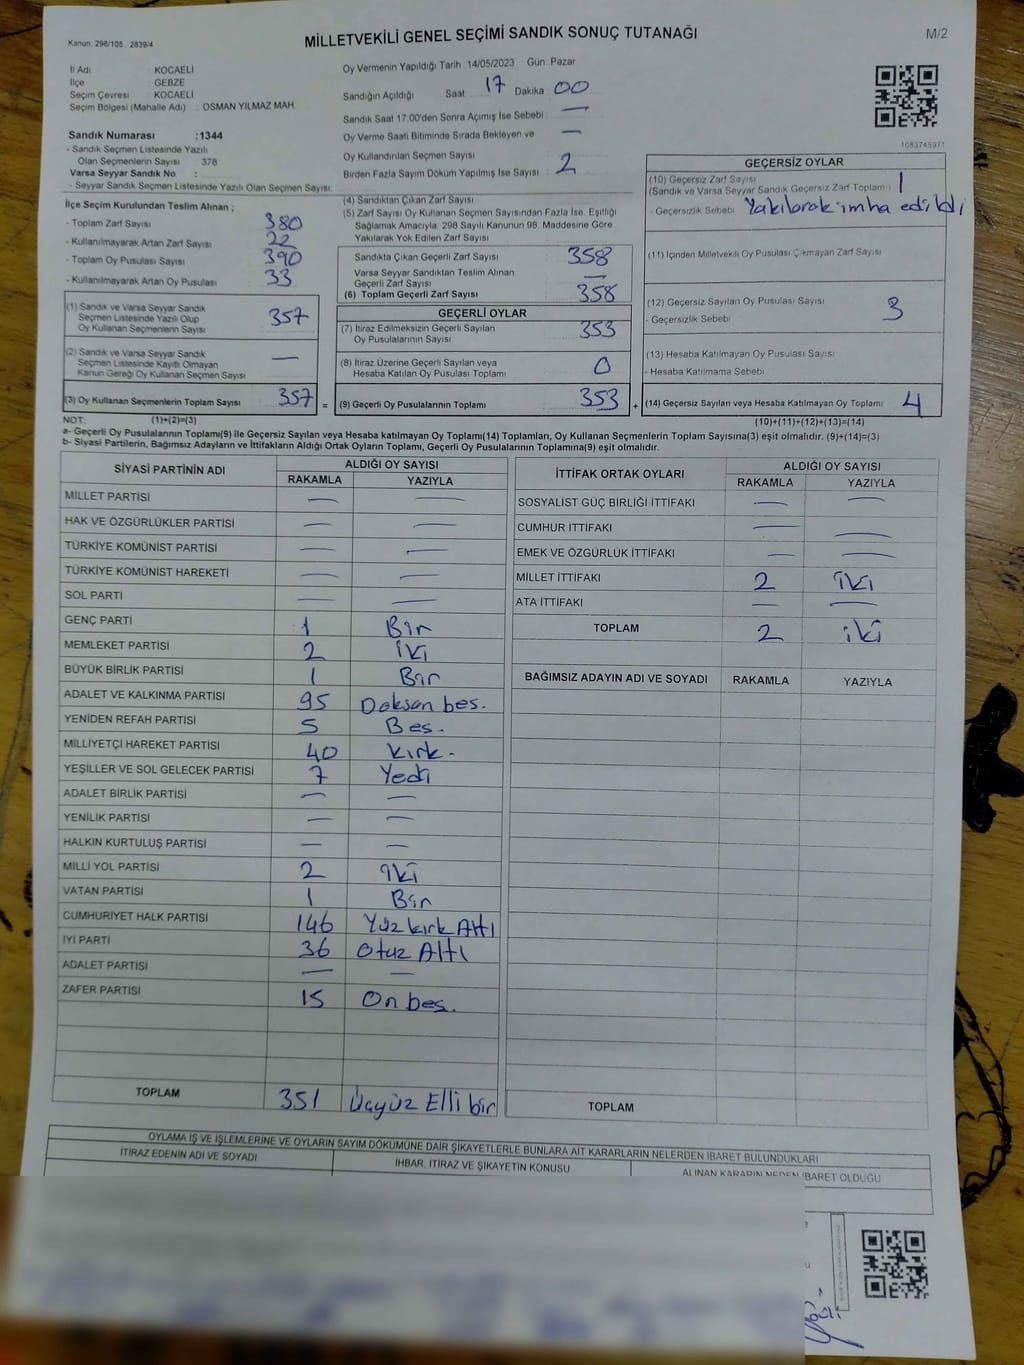 Kanun: 298/105 2839/4
MİLLETVEKİLİ GENEL SEÇİMİ SANDIK SONUÇ TUTANAĞI
M/2
İl Adı KOCAELİ
İlçe GEBZE
Seçim Çevresi KOCAELİ
Seçim Bölgesi (Mahalle Adı) : OSMAN YILMAZ MAH.
Sandık Numarası :1344
- Sandık Seçmen Listesinde Yazılı
Olan Seçmenlerin Sayısı 378
Varsa Seyyar Sandık No :
- Seyyar Sandık Seçmen Listesinde Yazılı Olan Seçmen Sayısı:
Oy Vermenin Yapıldığı Tarih :14/05/2023 Gün: Pazar
Sandığın Açıldığı Saat 17 Dakika 00
Sandık Saat 17:00'den Sonra Açımış İse Sebebi : —
Oy Verme Saati Bitiminde Sırada Bekleyen ve —
Oy Kullandırılan Seçmen Sayısı
Birden Fazla Sayım Döküm Yapılmış İse Sayısı : 2
1083745971
İlçe Seçim Kurulundan Teslim Alınan ;
- Toplam Zarf Sayısı 380
- Kullanılmayarak Artan Zarf Sayısı 22
- Toplam Oy Pusulası Sayısı 390
- Kullanılmayarak Artan Oy Pusulası 33
(1) Sandık ve Varsa Seyyar Sandık
Seçmen Listesinde Yazılı Olup
Oy Kullanan Seçmenlerin Sayısı 357
(2) Sandık ve Varsa Seyyar Sandık
Seçmen Listesinde Kayıtlı Olmayan
Kanun Gereği Oy Kullanan Seçmen Sayısı —
(3) Oy Kullanan Seçmenlerin Toplam Sayısı 357 =
(4) Sandıktan Çıkan Zarf Sayısı
(5) Zarf Sayısı Oy Kullanan Seçmen Sayısından Fazla İse, Eşitliği
Sağlamak Amacıyla, 298 Sayılı Kanunun 98. Maddesine Göre
Yakılarak Yok Edilen Zarf Sayısı
Sandıkta Çıkan Geçerli Zarf Sayısı 358
Varsa Seyyar Sandıktan Teslim Alınan
Geçerli Zarf Sayısı —
(6) Toplam Geçerli Zarf Sayısı 358
GEÇERLİ OYLAR
(7) İtiraz Edilmeksizin Geçerli Sayılan
Oy Pusulalarının Sayısı 353
(8) İtiraz Üzerine Geçerli Sayılan veya
Hesaba Katılan Oy Pusulası Toplamı 0
(9) Geçerli Oy Pusulalarının Toplamı 353 +
GEÇERSİZ OYLAR
(10) Geçersiz Zarf Sayısı
(Sandık ve Varsa Seyyar Sandık Geçersiz Zarf Toplamı) 1
- Geçersizlik Sebebi Yakılarak imha edildi
(11) İçinden Milletvekili Oy Pusulası Çıkmayan Zarf Sayısı
(12) Geçersiz Sayılan Oy Pusulası Sayısı 3
- Geçersizlik Sebebi
(13) Hesaba Katılmayan Oy Pusulası Sayısı
- Hesaba Katılmama Sebebi
(14) Geçersiz Sayılan veya Hesaba Katılmayan Oy Toplamı 4
NOT: (1)+(2)=(3) (10)+(11)+(12)+(13)=(14)
a- Geçerli Oy Pusulalarının Toplamı(9) ile Geçersiz Sayılan veya Hesaba katılmayan Oy Toplamı(14) Toplamları, Oy Kullanan Seçmenlerin Toplam Sayısına(3) eşit olmalıdır. (9)+(14)=(3)
b- Siyasi Partilerin, Bağımsız Adayların ve İttifakların Aldığı Ortak Oyların Toplamı, Geçerli Oy Pusulalarının Toplamına(9) eşit olmalıdır.
SİYASİ PARTİNİN ADI ALDIĞI OY SAYISI
RAKAMLA YAZIYLA
MİLLET PARTİSİ — —
HAK VE ÖZGÜRLÜKLER PARTİSİ — —
TÜRKİYE KOMÜNİST PARTİSİ — —
TÜRKİYE KOMÜNİST HAREKETİ — —
SOL PARTİ — —
GENÇ PARTİ 1 Bir
MEMLEKET PARTİSİ 2 iki
BÜYÜK BİRLİK PARTİSİ 1 Bir
ADALET VE KALKINMA PARTİSİ 95 Doksan bes.
YENİDEN REFAH PARTİSİ 5 Bes.
MİLLİYETÇİ HAREKET PARTİSİ 40 kırk.
YEŞİLLER VE SOL GELECEK PARTİSİ 7 Yedi
ADALET BİRLİK PARTİSİ — —
YENİLİK PARTİSİ — —
HALKIN KURTULUŞ PARTİSİ — —
MİLLİ YOL PARTİSİ 2 iki
VATAN PARTİSİ 1 Bir
CUMHURİYET HALK PARTİSİ 146 Yüz kırk Altı
İYİ PARTİ 36 Otuz Altı
ADALET PARTİSİ — —
ZAFER PARTİSİ 15 On bes.
TOPLAM 351 Üçyüz Elli bir
İTTİFAK ORTAK OYLARI ALDIĞI OY SAYISI
RAKAMLA YAZIYLA
SOSYALİST GÜÇ BİRLİĞİ İTTİFAKI — —
CUMHUR İTTİFAKI — —
EMEK VE ÖZGÜRLÜK İTTİFAKI — —
MİLLET İTTİFAKI 2 iki
ATA İTTİFAKI — —
TOPLAM 2 iki
BAĞIMSIZ ADAYIN ADI VE SOYADI RAKAMLA YAZIYLA
TOPLAM
OYLAMA İŞ VE İŞLEMLERİNE VE OYLARIN SAYIM DÖKÜMÜNE DAİR ŞİKAYETLERLE BUNLARA AİT KARARLARIN NELERDEN İBARET BULUNDUKLARI
İTİRAZ EDENİN ADI VE SOYADI İHBAR, İTİRAZ VE ŞİKAYETİN KONUSU ALINAN KARARIN NEDEN İBARET OLDUĞU